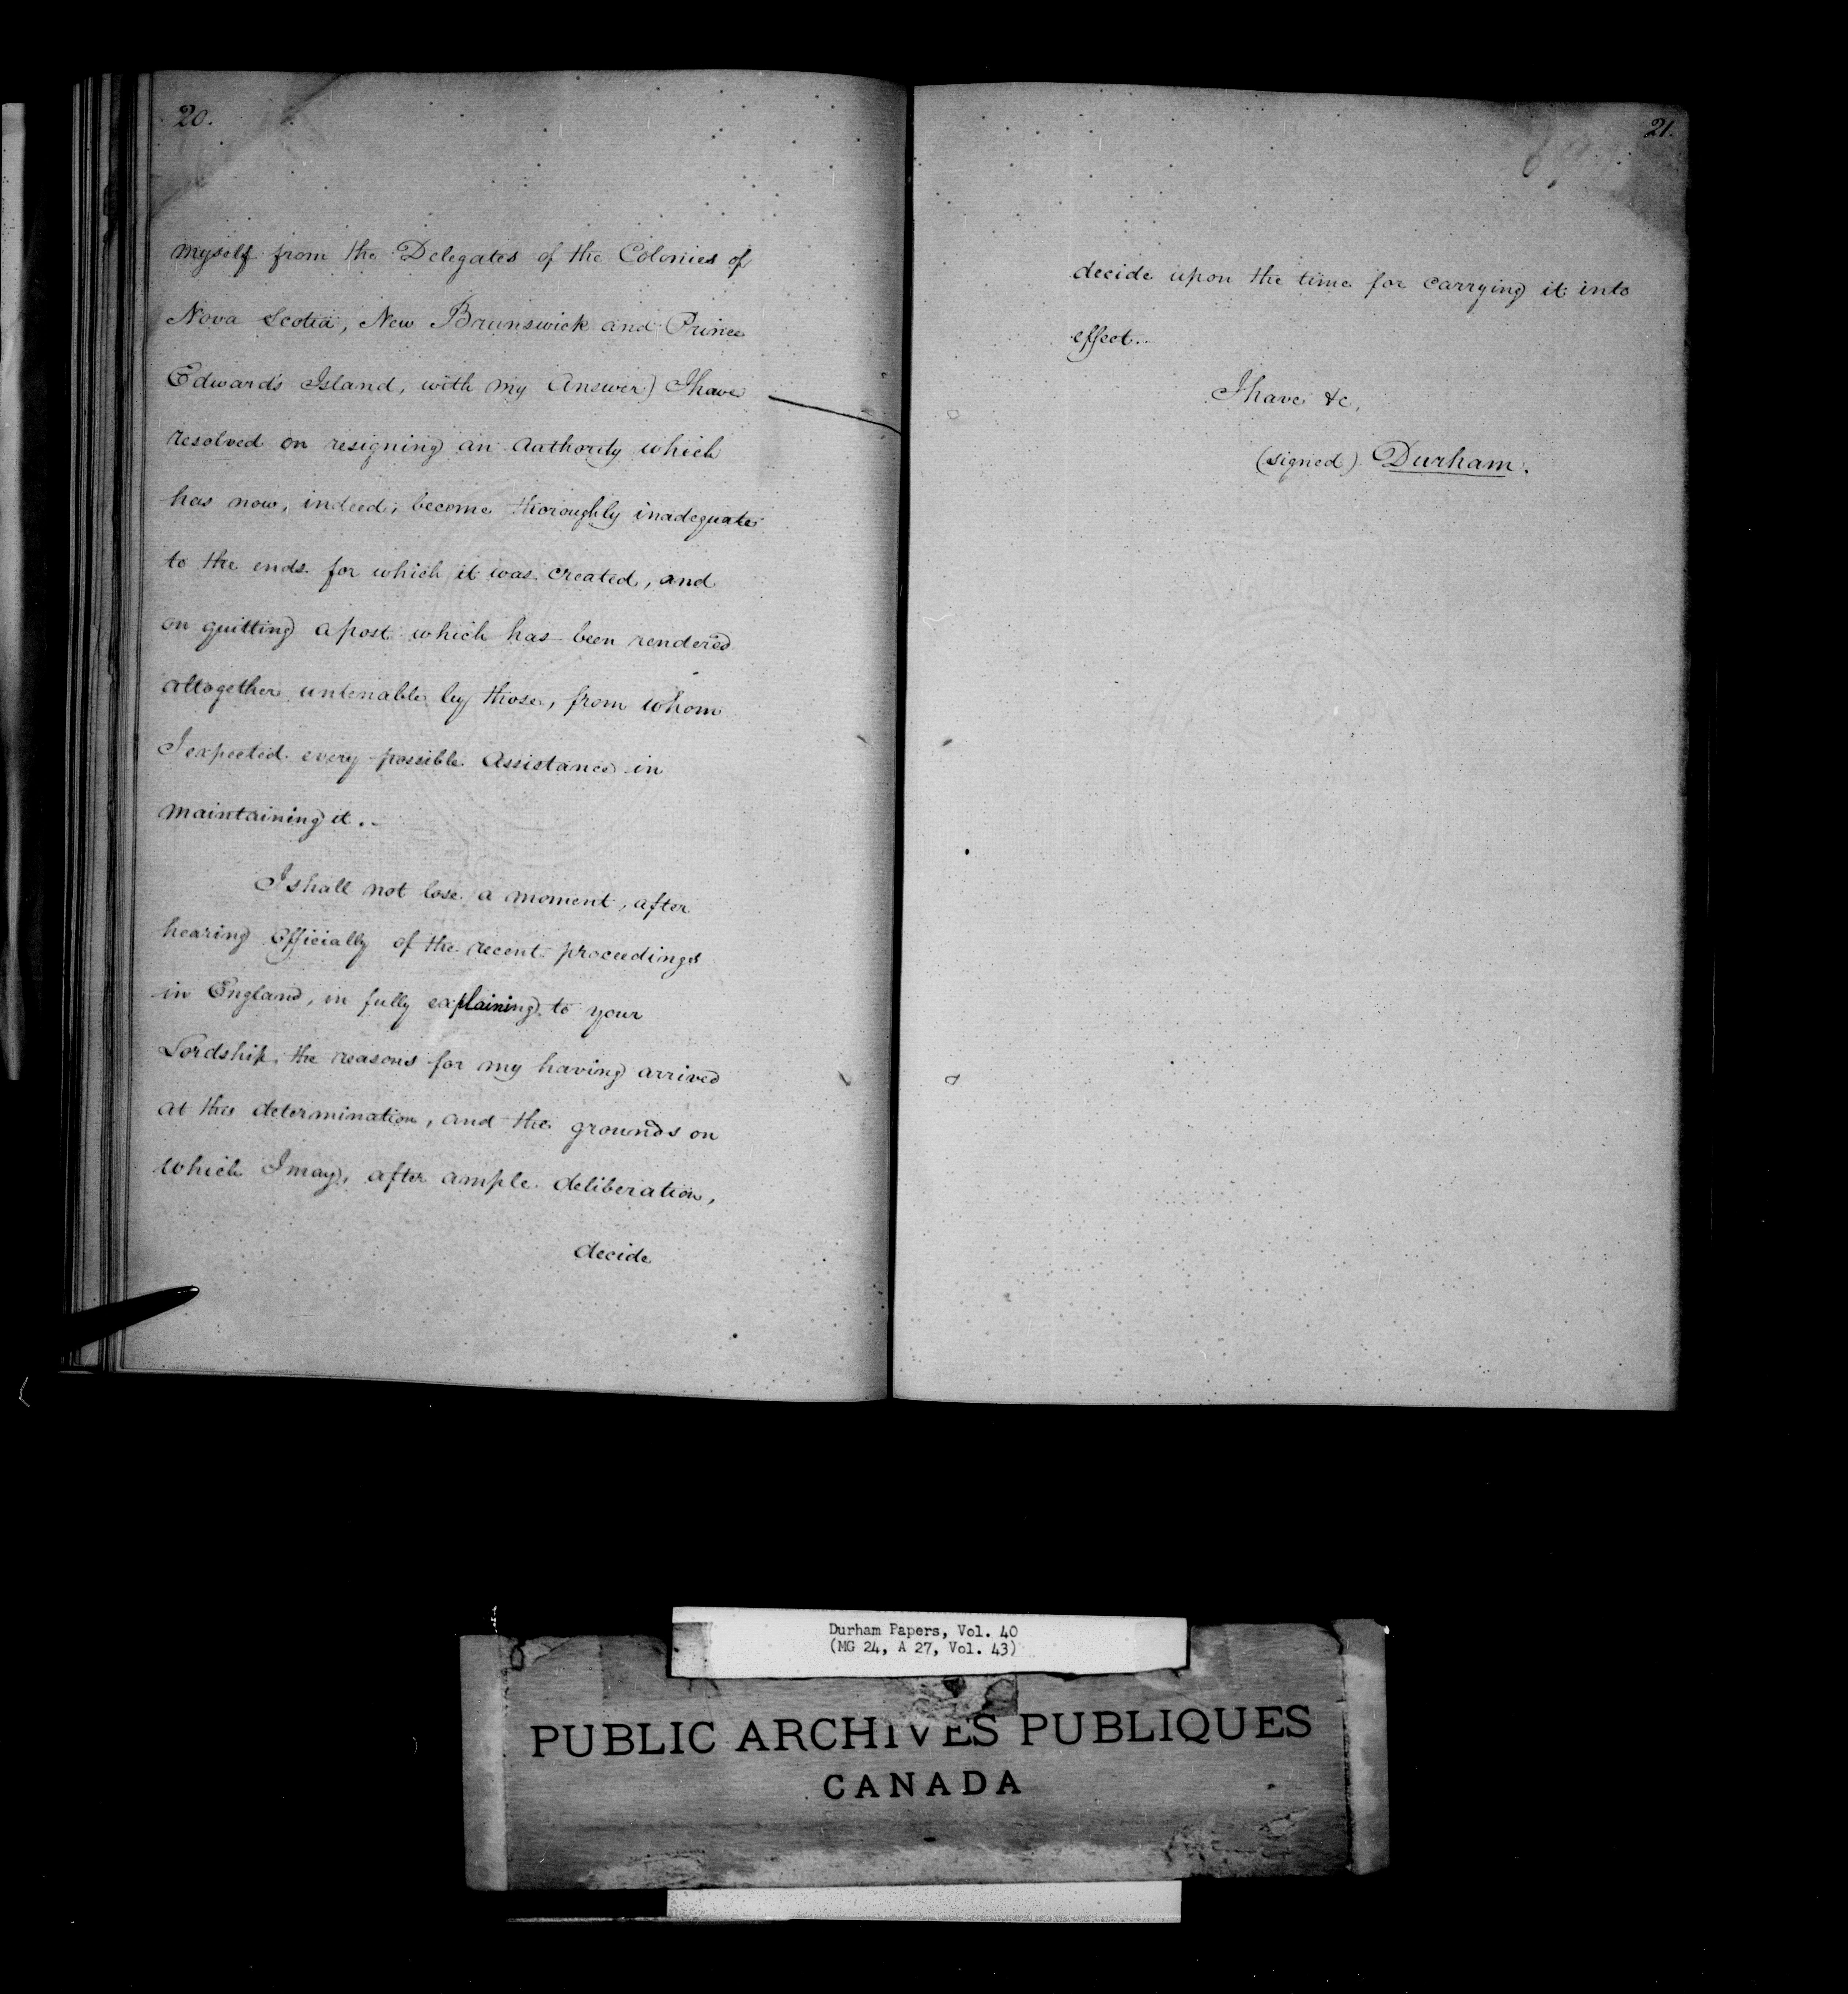 20.
myself from the Delegates of the Colonies of
Nova Scotia, New Brunswick and Prince
Edward's Island, with my Answer) I have
resolved on resigning an Authority which
has now, indeed, become thoroughly inadequate
to the ends for which it was created, and
on quitting a post which has been rendered
altogether untenable by those, from whom
I expected every possible Assistance in
maintaining it.-
I shall not lose a moment, after
hearing Officially of the recent proceedings
in England, in fully explaining to your
Lordship the reasons for my having arrived
at this determination, and the grounds on
which I may, after ample deliberation,
decide
21.
decide upon the time for carrying it into
effect.-
I have &c,
(signed) Durham.
Durham Papers, Vol. 40
(MG 24, A 27, Vol. 43)
PUBLIC ARCHIVES PUBLIQUES
CANADA